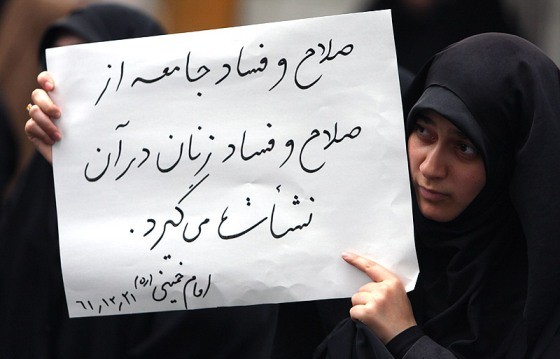 صلاح و فساد جامعه از
صلاح و فساد زنان در آن
نشأت می‌گیرد.
امام خمینی (ره)
۶۱,۱۲,۲۱